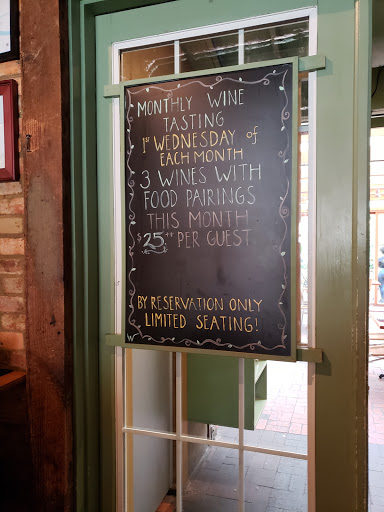 MONTHLY WINE
TASTING
1ST WEDNESDAY of
EACH MONTH
3 WINES WITH
FOOD PAIRINGS
THIS MONTH
$25.++ PER GUEST
BY RESERVATION ONLY
LIMITED SEATING!